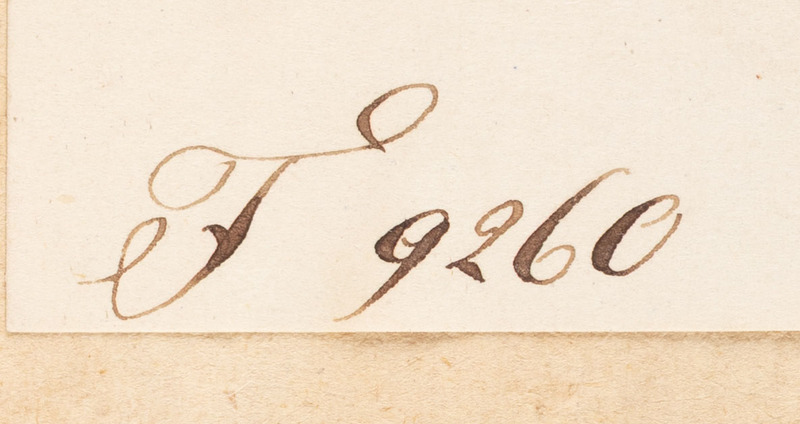 F 9260